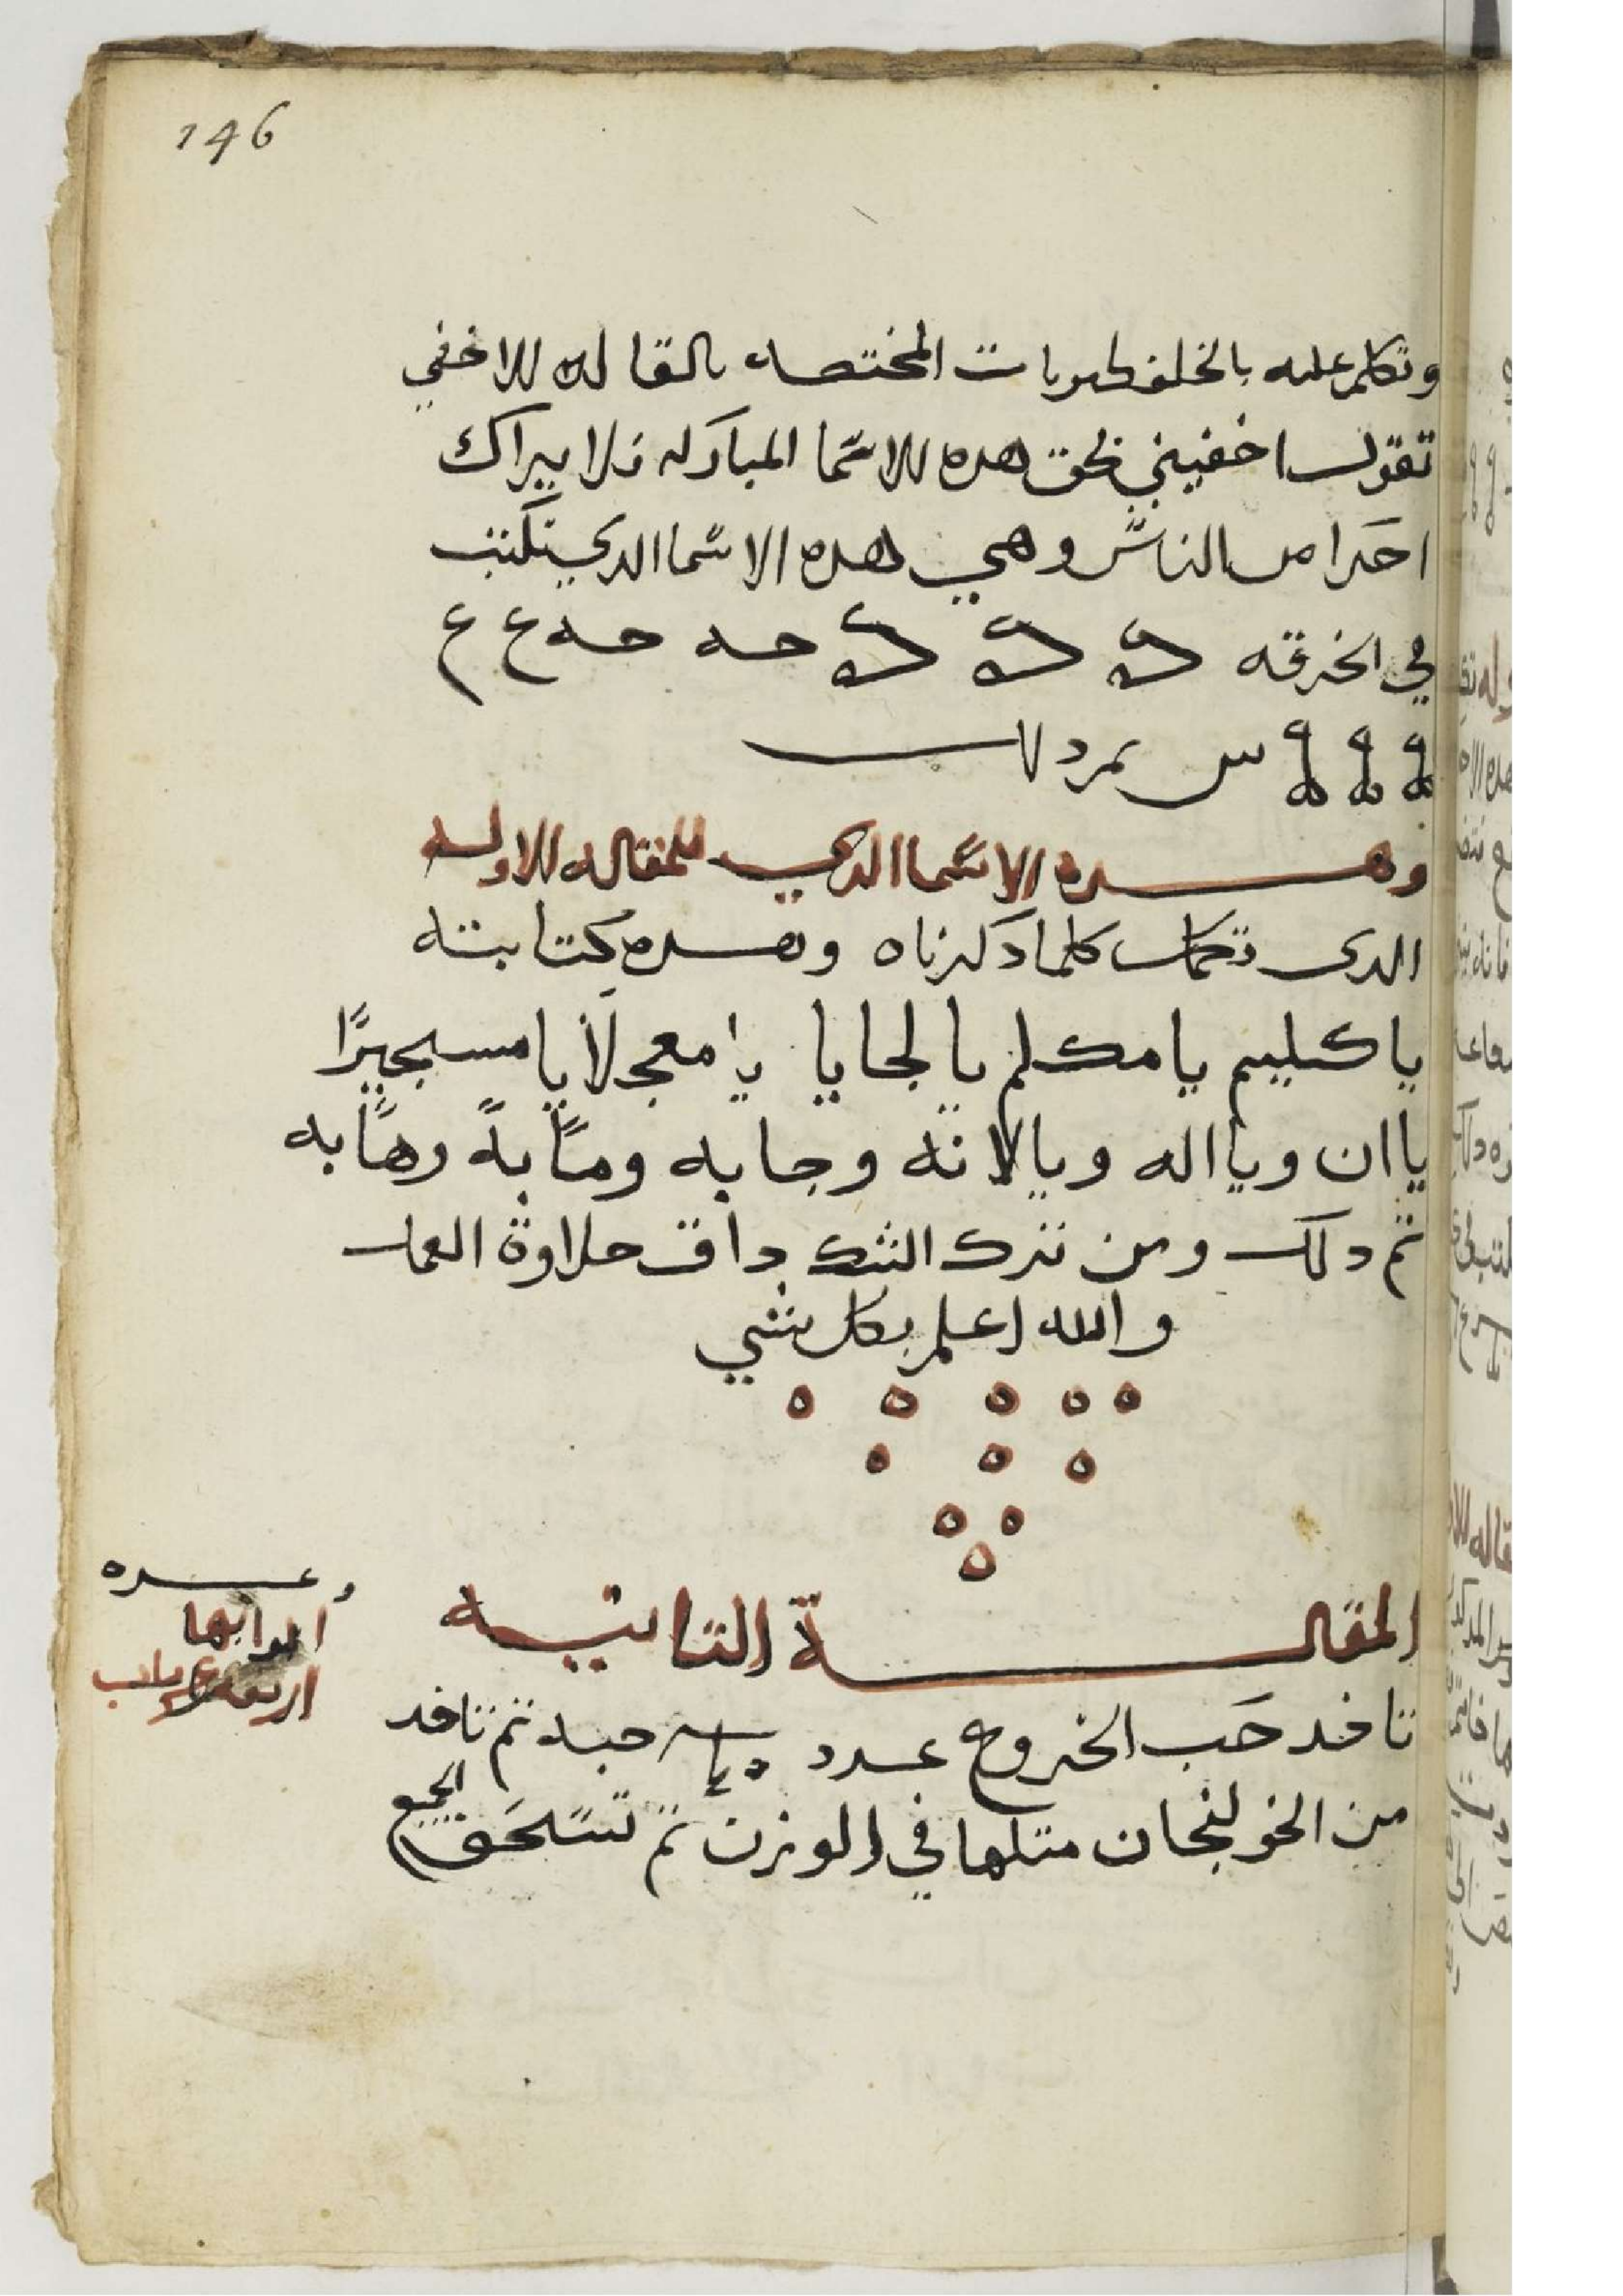 146
وتكلم عليه بالخلفطيريات المختصه بالمقاله للاخفي
تقول اخفيني بحق هده للاسما المباركه فلا يبراك
احدا من الناس وهي هده الاسما الدي تكتب
في الخرقه حه حه ع ع
س يمرد لا
وهده الاسما الدي للمقاله للاوله
الدي تكمل كلما دكرناه وهده كتابته
يا كليم يا مكلم يا لجايا يا معجلاً يا مسبجيرًا
يا ان ويا اله ويا لانه وجابه ومتابة رهابه
تم دلك ومن ترك الشك داق حلاوة العمل
والله اعلم بكل شي
المقالة التانيه
وعده
ابوابها
اربعة
تاخد حب الخروع عدد حبه تم تاخد
من الخولنجان متلها في الوزن تم تسحق الجميع